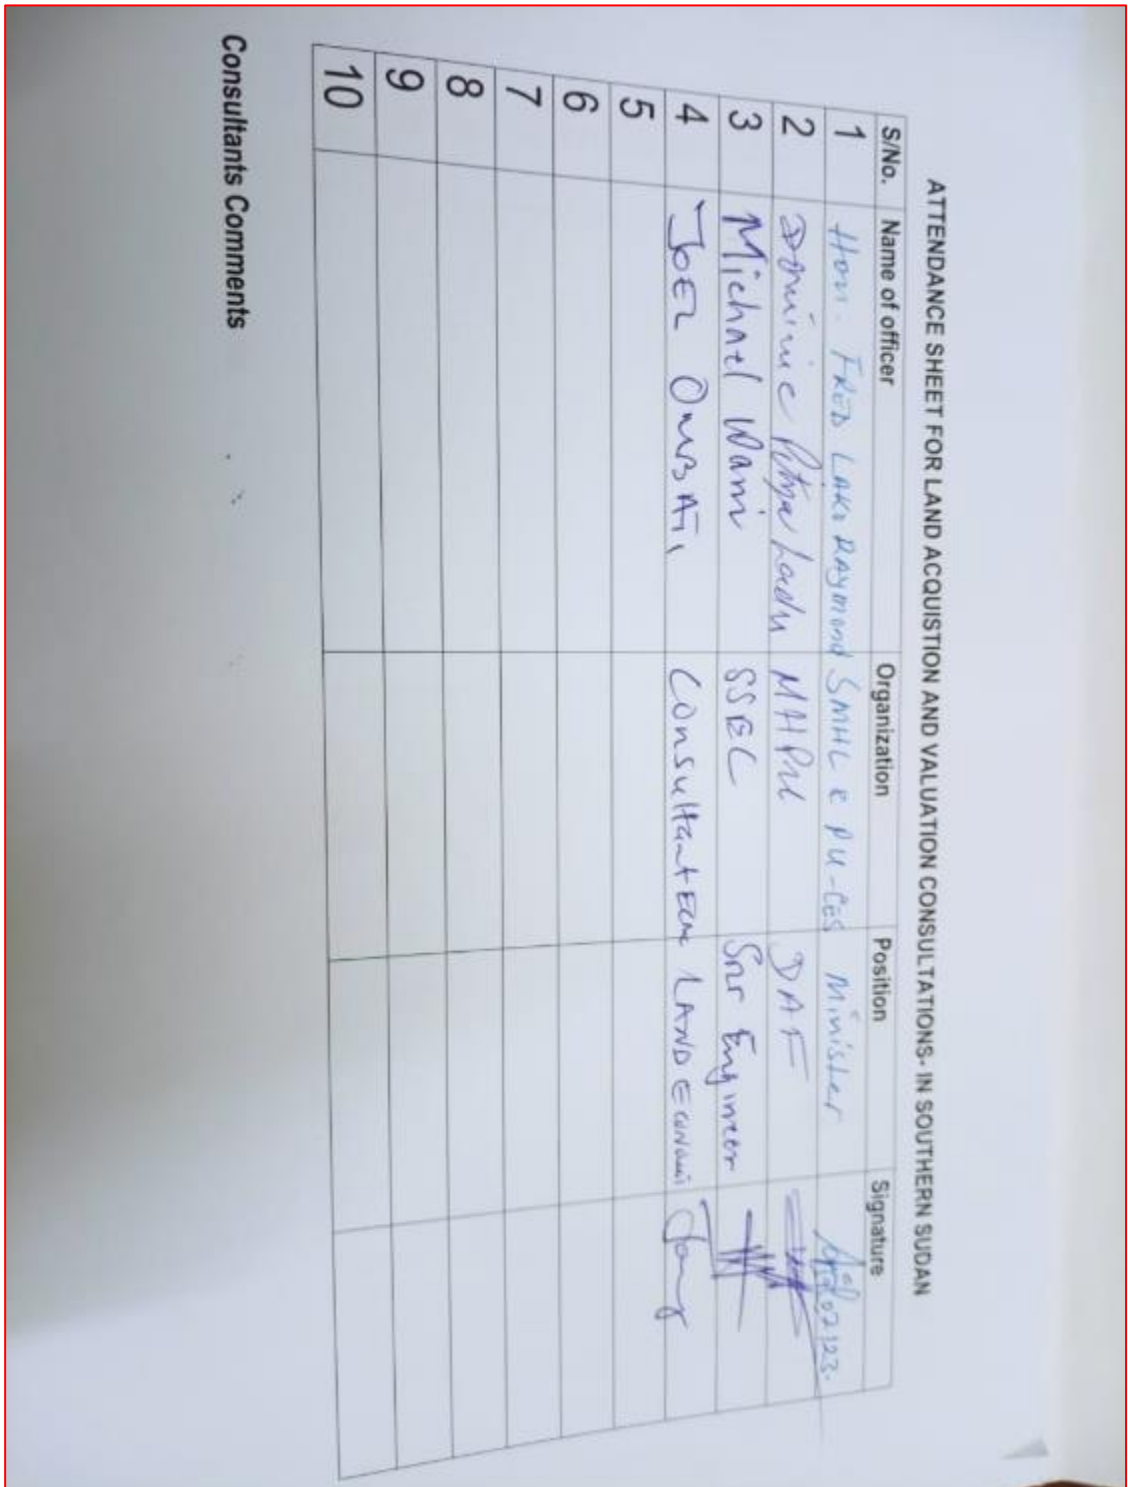 ATTENDANCE SHEET FOR LAND ACQUISTION AND VALUATION CONSULTATIONS- IN SOUTHERN SUDAN
S/No. Name of officer Organization Position Signature
1 Hon. FRED LAKO RAYMOND SMHL & PU-CES Minister
2 Dominic Ladu MHPU DAF
3 Michael Wani SSEC Snr Engineer
4 JOEL OMBATI Consultant LAND
5
6
7
8
9
10
Consultants Comments